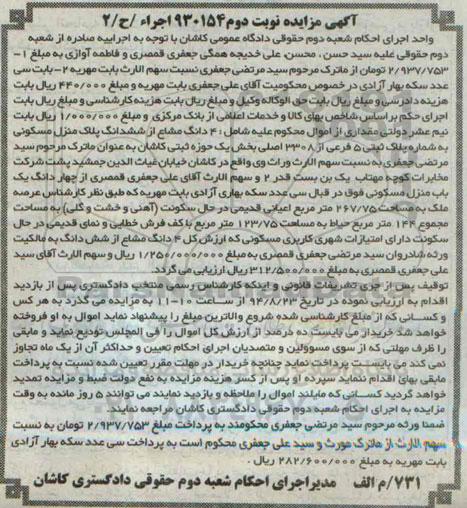 آگهی مزایده نوبت دوم ۹۳۰۱۵۴ اجراء /ح/۲
واحد اجرای احکام شعبه دوم حقوقی دادگاه عمومی کاشان با توجه به اجراییه صادره از شعبه
دوم حقوقی علیه سید حسن، محسن، علی خدیجه همگی جعفری قمصری و فاطمه آوازی به مبلغ ۱-
۲/۹۳۷/۷۵۳ تومان از ماترک مرحوم سید مرتضی جعفری نسبت سهم الارث بابت مهریه ۲- بابت سی
عدد سکه بهار آزادی در خصوص محکومیت آقای علی جعفری بابت مهریه و مبلغ ۴۴۰/۰۰۰ ریال بابت
هزینه دادرسی و مبلغ ریال بابت حق الوکاله وکیل و مبلغ ریال بابت هزینه کارشناسی و مبلغ ریال بابت
اجرای حکم براساس شاخص بهای کالا و خدمات اعلامی از بانک مرکزی و مبلغ ۱/۰۰۰/۰۰۰ ریال بابت
نیم عشر دولتی مقداری از اموال محکوم علیه شامل: ۴ دانگ مشاع از ششدانگ پلاک منزل مسکونی
به شماره پلاک ثبتی ۵ فرعی از ۳۳۰۸ اصلی بخش یک حوزه ثبتی کاشان به عنوان ماترک مرحوم سید
مرتضی جعفری به نسبت سهم الارث وراث وی واقع در کاشان خیابان غیاث الدین جمشید پشت شرکت
مخابرات کوچه مهتاب یک بن بست قدر ۲ و سهم الارث آقای علی جعفری قمصری از چهار دانگ یک
باب منزل مسکونی فوق در قبال سی عدد سکه بهاری آزادی بابت مهریه که طبق نظر کارشناس عرصه
ملک به مساحت ۲۶۷/۷۵ متر مربع اعیانی قدیمی در حال سکونت (آهنی و خشت و گلی) به مساحت
مجموع ۱۴۴ متر مربع حیاط به مساحت ۱۲۳/۷۵ متر مربع با کف فرش خطایی و نمای قدیمی در حال
سکونت دارای امتیازات شهری کاربری مسکونی که ارزش کل ۴ دانگ مشاع از شش دانگ به مالکیت
ورثه شادروان سید مرتضی جعفری قمصری به مبلغ ۱/۲۵۰/۰۰۰/۰۰۰ ریال و سهم الارث آقای سید
علی جعفری قمصری به مبلغ ۳۱۲/۵۰۰/۰۰۰ ریال ارزیابی می گردد.
توقیف پس از جری تشریفات قانونی و اینکه کارشناس رسمی منتخب دادگستری پس از بازدید
اقدام به ارزیابی نموده در تاریخ ۹۴/۸/۲۳ از ساعت ۱۰-۱۱ به مزایده می گذرد به هر کس
و کسانی که از مبلغ کارشناسی شده شروع و بالاترین مبلغ را پیشنهاد نماید اموال به او فروخته
خواهد شد خریدار می بایست ده درصد از ارزش کل اموال را فی المجلس تودیع نماید و مابقی
را ظرف مهلتی که از سوی مسوولین و متصدیان اجرای احکام تعیین و حداکثر آن از یک ماه تجاوز
نمی کند می بایست پرداخت نماید چنانچه خریدار در مهلت مقرر تعیین شده نسبت به پرداخت
مابقی بهای اقدام ننماید سپرده او پس از کسر هزینه مزایده به نفع دولت ضبط و مزایده تمدید
خواهد گردید کسانی که مایلند اموال را ملاحظه و بازدید نمایند می توانند ۵ روز مانده به وقت
مزایده به اجرای احکام شعبه دوم حقوقی دادگستری کاشان مراجعه نمایند.
ضمنا ورثه مرحوم سید مرتضی جعفری محکومند به پرداخت مبلغ ۲/۹۳۷/۷۵۳ تومان به نسبت
سهم الارث از ماترک مورث و سید علی جعفری محکوم است به پرداخت سی عدد سکه بهار آزادی
بابت مهریه به مبلغ ۲۸۲/۶۰۰/۰۰۰ ریال.
۷۳۱/م الف مدیر اجرای احکام شعبه دوم حقوقی دادگستری کاشان